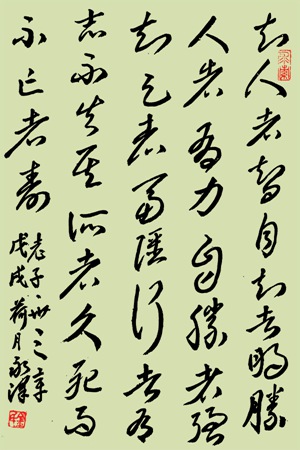 知人者智自知者明勝
人者有力自勝者强
知足者富彊行者有
志不失其所者久死而
不亡者寿
老子卅三章
戊戌荷月